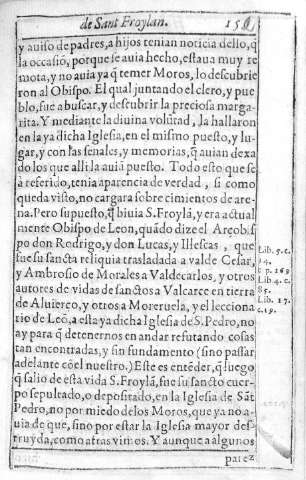 de Sant Froylan. 15
y auiso de padres, a hijos tenian noticia dello, q̃
la occasió, porque se auia hecho, estaua muy re
mota, y no auia ya q̃ temer Moros, lo descubrie
ron al Obispo. El qual juntando el clero, y pue
blo, fue a buscar, y descubrir la preciosa marga-
rita. Y mediante la diuina volũtad, la hallaron
en la ya dicha Iglesia, en el mismo puesto, y lu-
gar, y con las señales, y memorias, q̃ auian dexa
do los que alli la auiã puesto. Todo esto que se
à referido, tenia aparencia de verdad, si como
queda visto, no cargara sobre cimientos de are-
na. Pero supuesto, q̃ biuia S. Froylã, y era actual
mente Obispo de Leon, quãdo dize el Arçobis
po don Rodrigo, y don Lucas, y Illescas, que
fue su sancta reliquia trasladada a valde Cesar,
y Ambrosio de Morales a Valdecarlos, y otros
autores de vidas de sanctos a Valcarce en tierra
de Aluierço, y otros a Moreruela, y el lecciona
rio de Leõ, a esta ya dicha Iglesia de S. Pedro, no
ay para q̃ detenernos en andar refutando cosas
tan encontradas, y sin fundamento (sino passar
adelante cõ el nuestro.) Este es entẽder, q̃ luego
q̃ salio de esta vida S. Froylã, fue su sancto cuer-
po sepultado, o depositado, en la Iglesia de Sãt
Pedro, no por miedo de los Moros, que ya no a-
uia de que, sino por estar la Iglesia mayor des-
truyda, como atras vimos. Y aunque a algunos
parez
Lib. 5. c.
14.
t p. 169
Lib 4. c.
85.
Lib. 17.
c. 19.